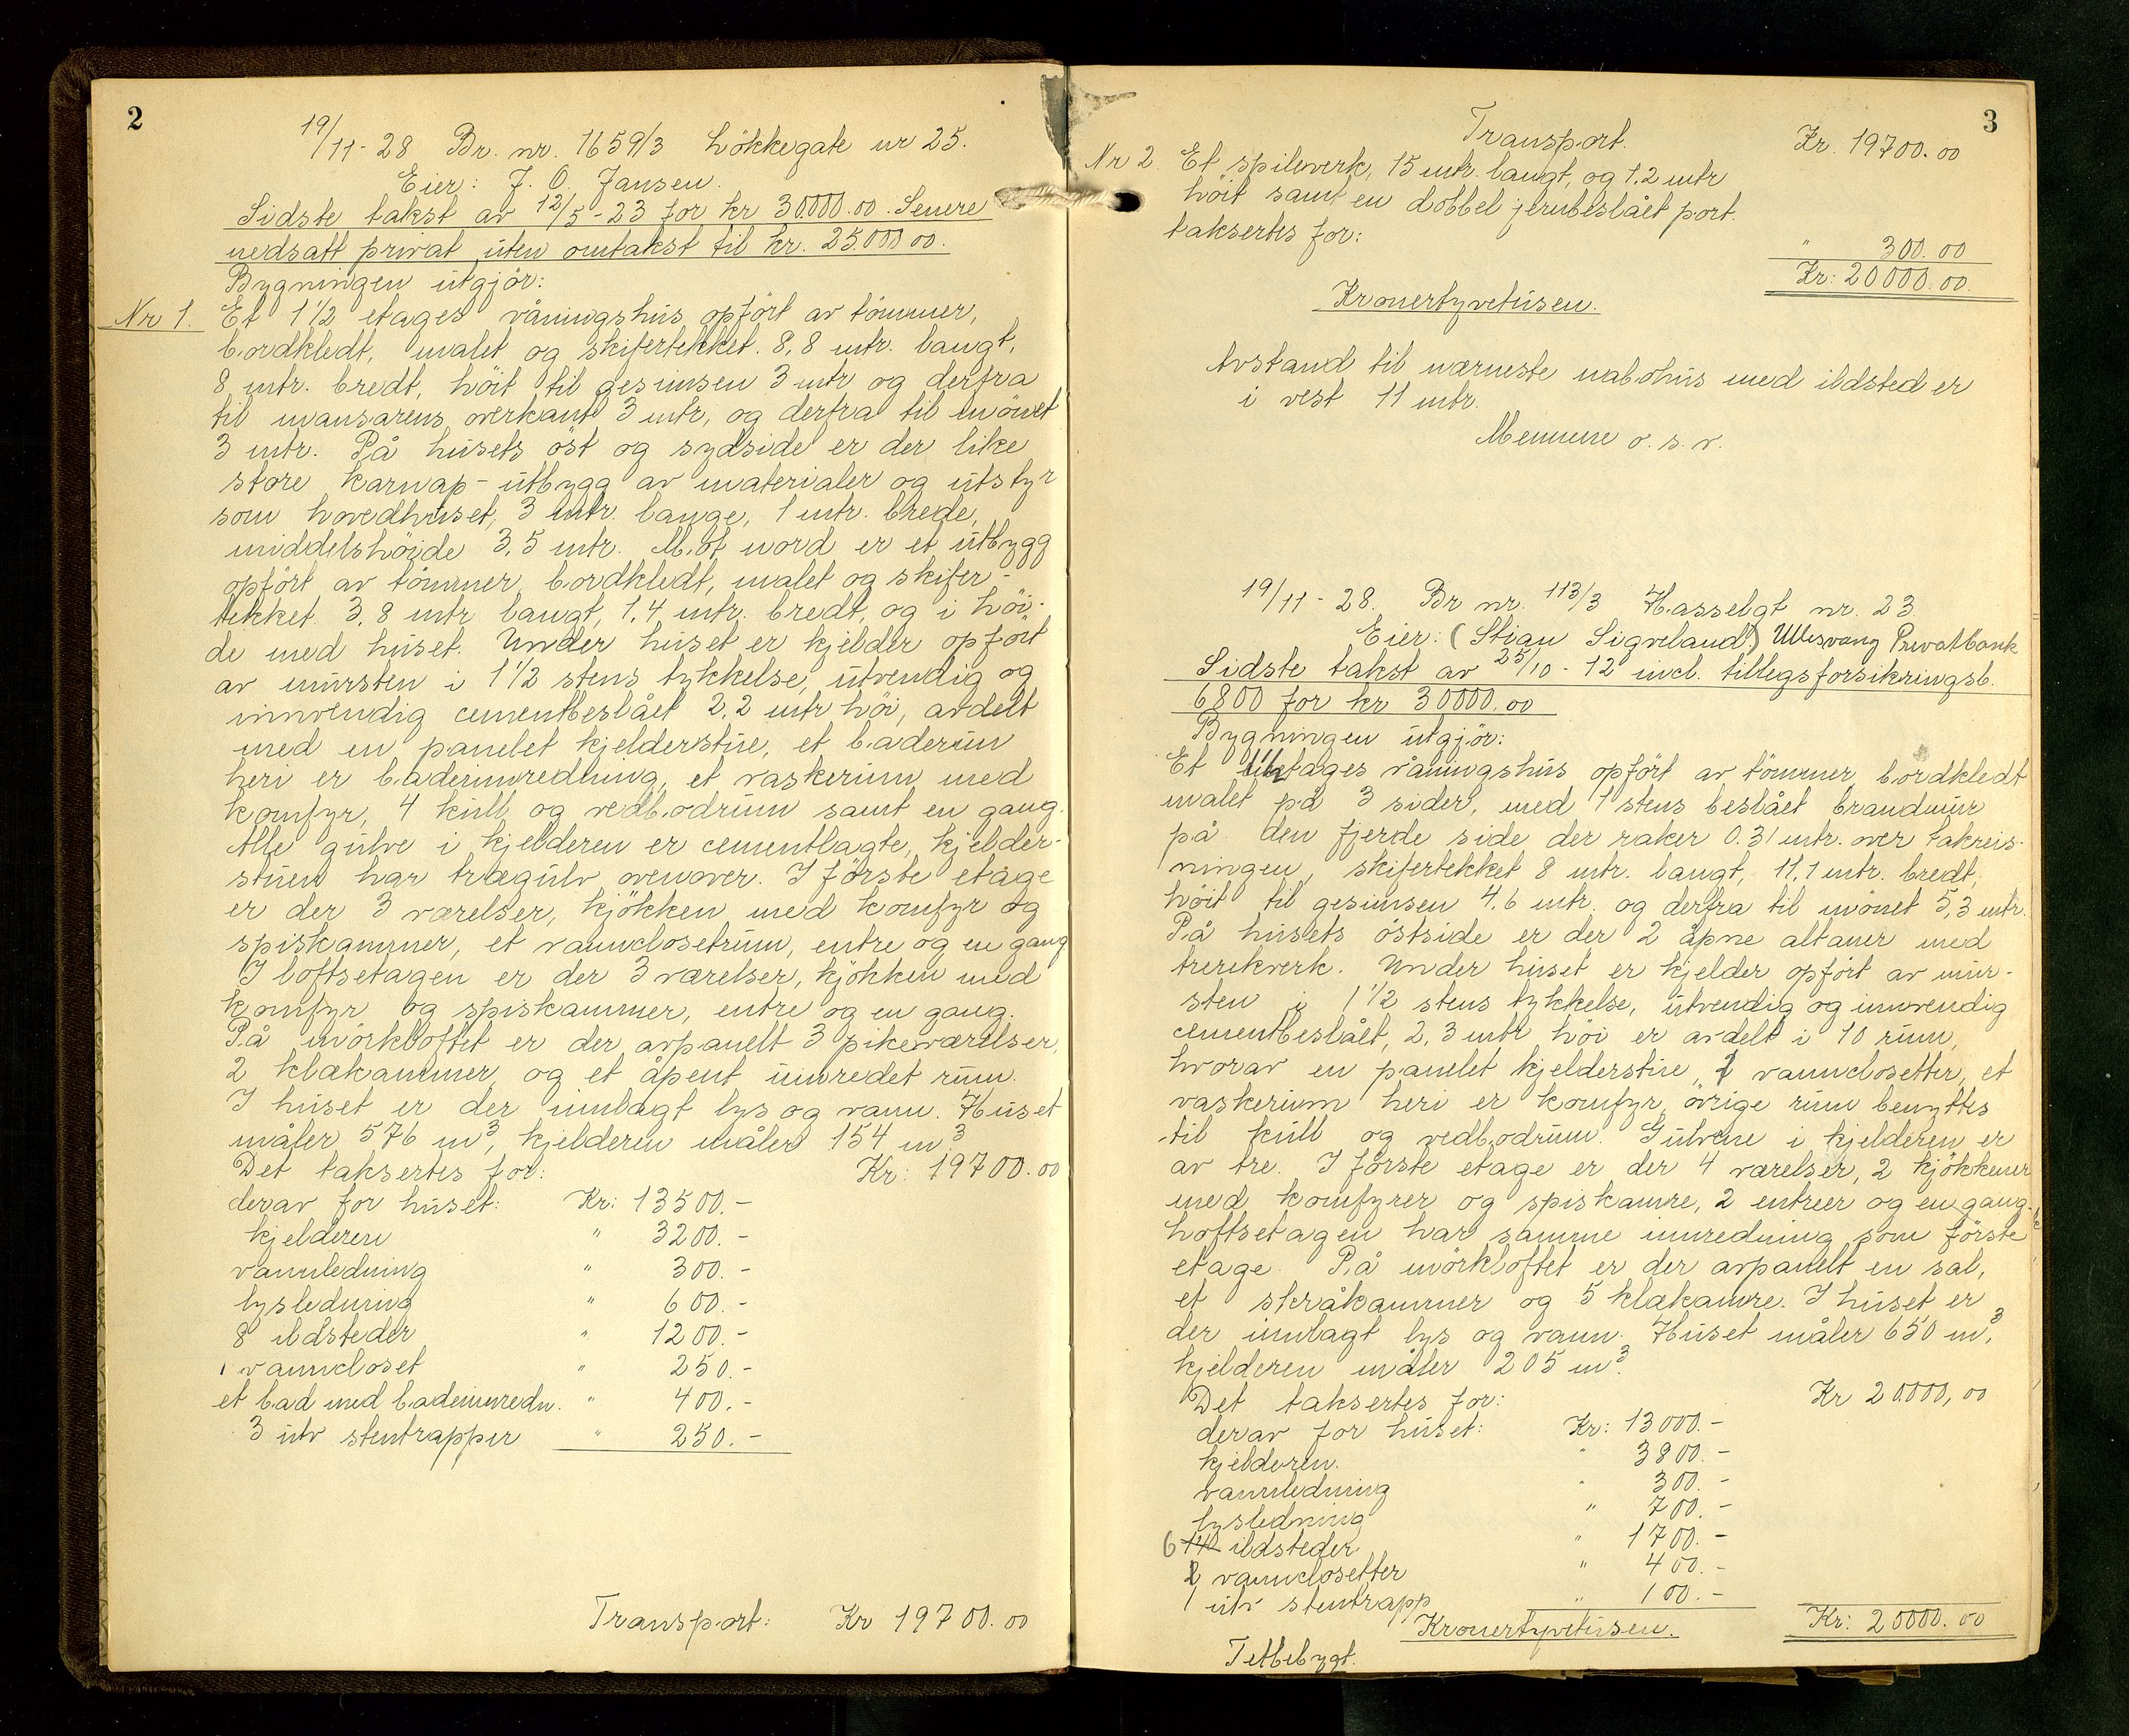 2
19/11-28 Br. nr. 1659/3 Løkkegate nr 25.
Eier: J. O. Jansen.
Sidste takst av 12/5-23 for kr 30.000.00. Senere
nedsatt privat uten omtakst til kr. 25.000 00.
Bygningen utgjør:
Nr 1. Et 1 1/2 etages våningshus opført av tømmer,
bordkledt, malet og skifertekket. 8,8 mtr. langt,
8 mtr. bredt, høit til gesimsen 3 mtr og derfra
til mansarens overkant 3 mtr, og derfra til mønet
3 mtr. På husets øst og sydside er der like
store karnap-utbygg av materialer og utstyr
som hovedhuset, 3 mtr. lange, 1 mtr. brede,
middelshøide 3,5 mtr. Mot nord er et utbygg
opført av tømmer, bordkledt, malet og skifer-
tekket. 3,8 mtr langt, 1,4 mtr. bredt, og i høi-
de med huset. Under huset er kjelder opført
av mursten i 1 1/2 stens tykkelse, utvendig og
innvendig cementbeslået 2,2 mtr høi, avdelt
med en panelet kjelderstue, et baderum
heri er badeinnredning, et vaskerum med
komfyr, 4 kull og vedbodrum samt en gang.
Alle gulve i kjelderen er cementlagte, kjelder-
stuen har trægulv ovenover. I første etage
er der 3 værelser, kjøkken med komfyr og
spiskammer, et vannclosetrum, entre og en gang
I loftsetagen er der 3 værelser, kjøkken med
komfyr og spiskammer, entre og en gang.
På mørkloftet er der avpanelt 3 pikeværelser,
2 klækammer og et åpent uinredet rum.
I huset er der innlagt lys og vann. Huset
måler 576 m3, kjelderen måler 154 m3
Det taksertes for: Kr: 19700.00
derav for huset: Kr: 13500.-
kjelderen " 3200.-
vannledning " 300.-
lysledning " 600.-
8 ildsteder " 1200.-
1 vanncloset " 250.-
et bad med badeinnredn. " 400.-
3 utv stentrapper " 250.-
Transport: Kr 19700.00
3
Transport. Kr. 19700.00
Nr 2. Et spileverk, 15 mtr. langt, og 1,2 mtr
høit samt en dobbel jernbeslået port.
taksertes for:
" 300.00
Kr: 20000.00.
Kronertyvetusen.
Avstand til nærmeste nabohus med ildsted er
i vest 11 mtr.
Mennene o. s. v.
19/11-28. Br nr. 113/3 Hasselgt nr. 23
Eier: (Stian Sigveland.) Ullesvang Privatbank
Sidste takst av 25/10-12 incl. tillegsforsikringsb.
6800 for kr 30000.00
Bygningen utgjør:
Et etages våningshus opført av tømmer, bordkledt
malet på 3 sider, med 1 stens beslået brandmur
på den fjerde side der raker 0.31 mtr. over takreis-
ningen, skifertekket 8 mtr. langt, 11,1 mtr. bredt,
høit til gesimsen 4,6 mtr. og derfra til mønet 5,3 mtr.
På husets østside er der 2 åpne altaner med
trerekverk. Under huset er kjelder opført av mur-
sten i 1 1/2 stens tykkelse, utvendig og innvendig
cementbeslået, 2,3 mtr høi er avdelt i 10 rum,
hvorav en panelet kjelderstue, 2 vannclosetter, et
vaskerum heri er komfyr, øvrige rum benyttes
til kull og vedbodrum. Gulvene i kjelderen er
av tre. I første etage er der 4 værelser, 2 kjøkkener
med komfyrer og spiskamre, 2 entreer og en gang.
Loftsetagen har samme innredning som første
etage. På mørkloftet er der avpanelt en sal,
et skråkammer og 5 klækamre. I huset er
der innlagt lys og vann. Huset måler 650 m3,
kjelderen måler 205 m3.
Det taksertes for: Kr 20.000,00
derav for huset: Kr: 13000.-
kjelderen. " 3800.-
vannledning " 300.-
lysledning " 700.-
6 ildsteder " 1700.-
2 vannclosetter " 400.-
1 utv stentrapp " 100.-
Kronertyvetusen. Kr: 20000.00
Tettbebygt.